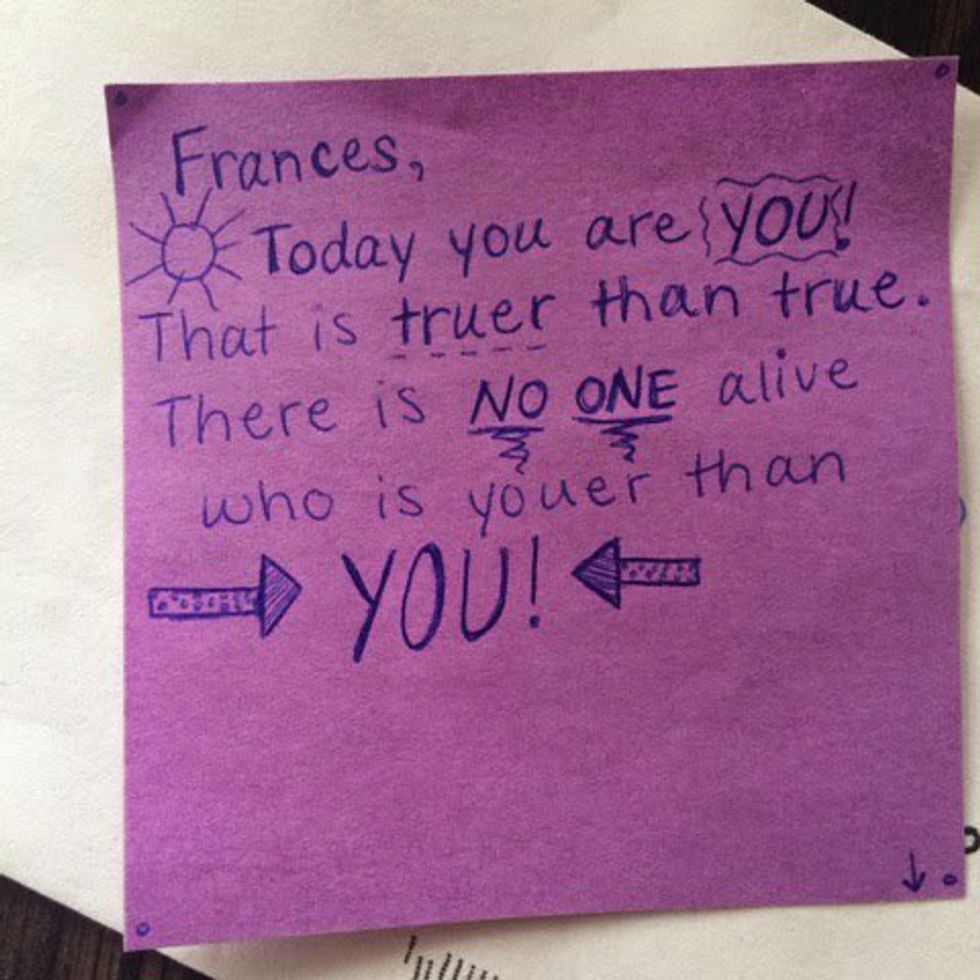 Frances,
Today you are YOU!
That is truer than true.
There is NO ONE alive
who is youer than
YOU!